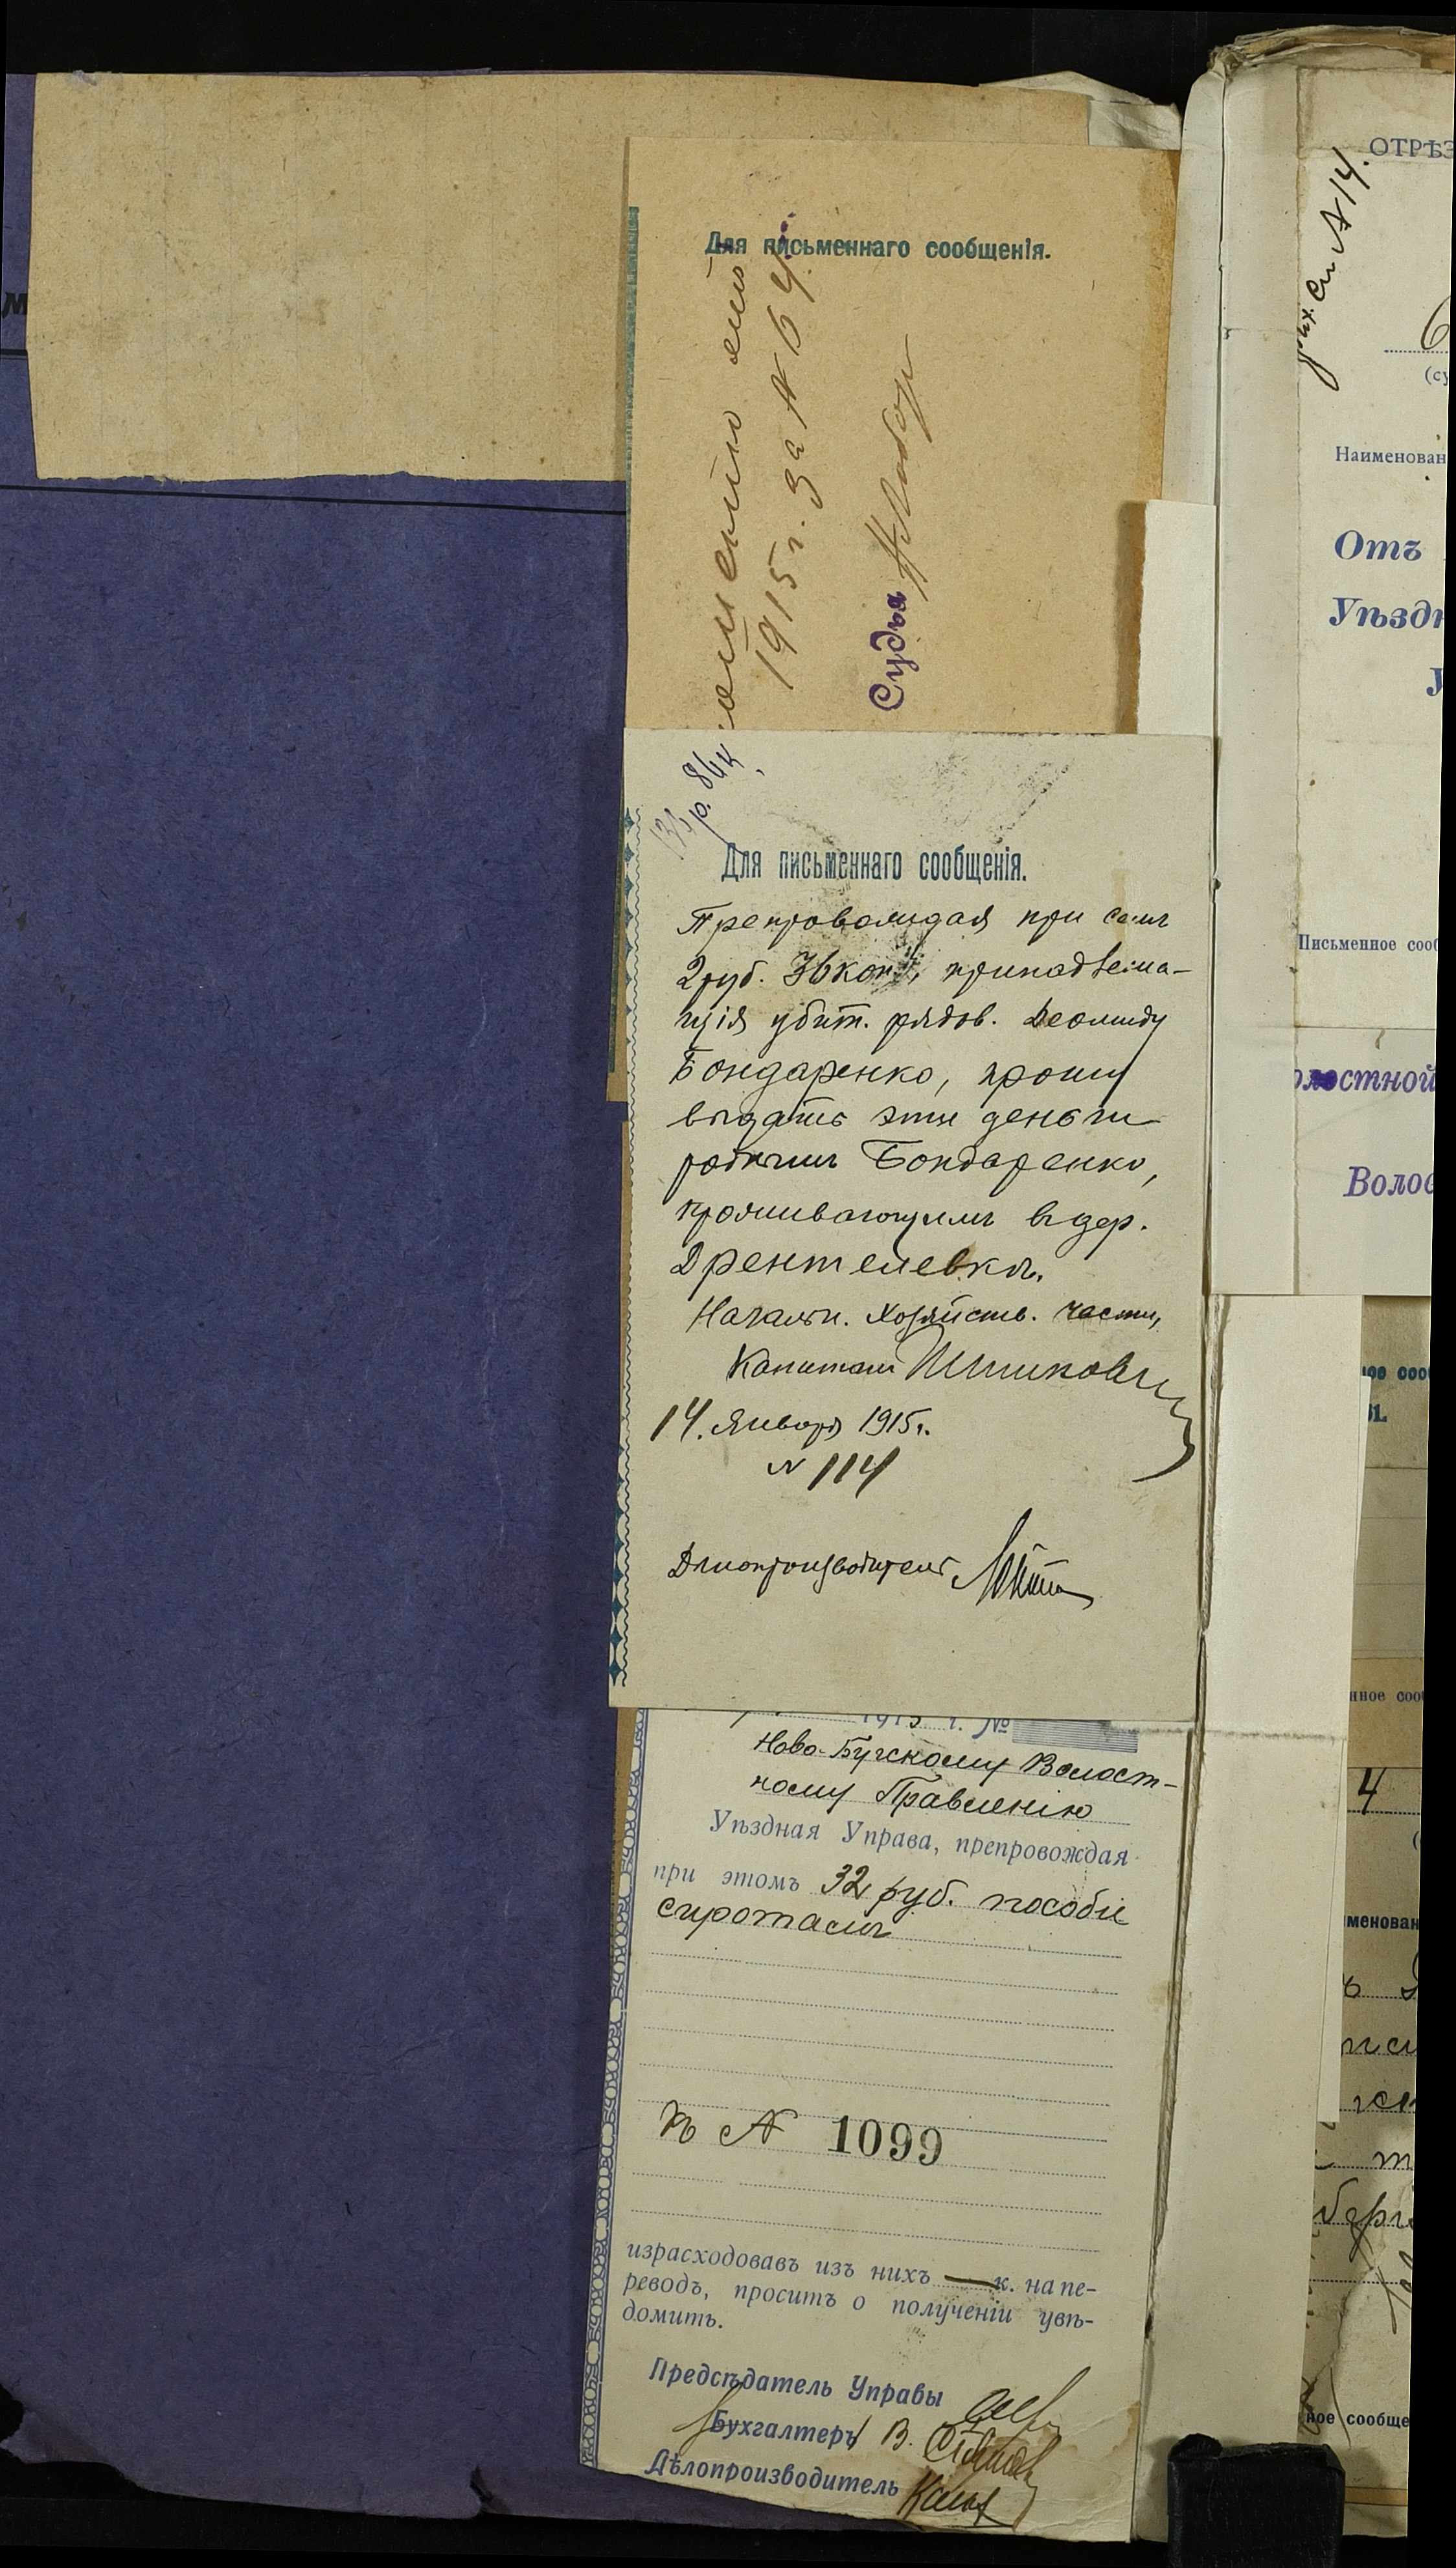 Для письменнаго сообщенія.
1915 г. за № 64.
Судья
р. 86 к.
Для письменнаго сообщенія.
Препровождая при семъ
2 руб. 36 коп., принадлежа-
щія убит. рядов. Леониду
Бондаренко, прошу
выдать эти деньги
роднымъ Бондаренко,
проживающимъ въ дер.
Дрентелевкѣ.
Начальн. Хозяйств. части,
Капитанъ
14. Января 1915 г.
№ 114
Дѣлопроизводитель
1915 г. №
Ново-Бугскому Волост-
ному Правленію
Уѣздная Управа, препровождая
при этомъ 32 руб. пособіе
сиротамъ
къ № 1099
израсходовавъ изъ нихъ — к. на пе-
реводъ, проситъ о полученіи увѣ-
домить.
Предсѣдатель Управы
Бухгалтеръ В.
Дѣлопроизводитель
ОТРѢЗ
№ 14.
Наименован
Отъ
Уѣздн
Письменное сооб
олостной
Волос
ное сооб
4
менован
ное сообще